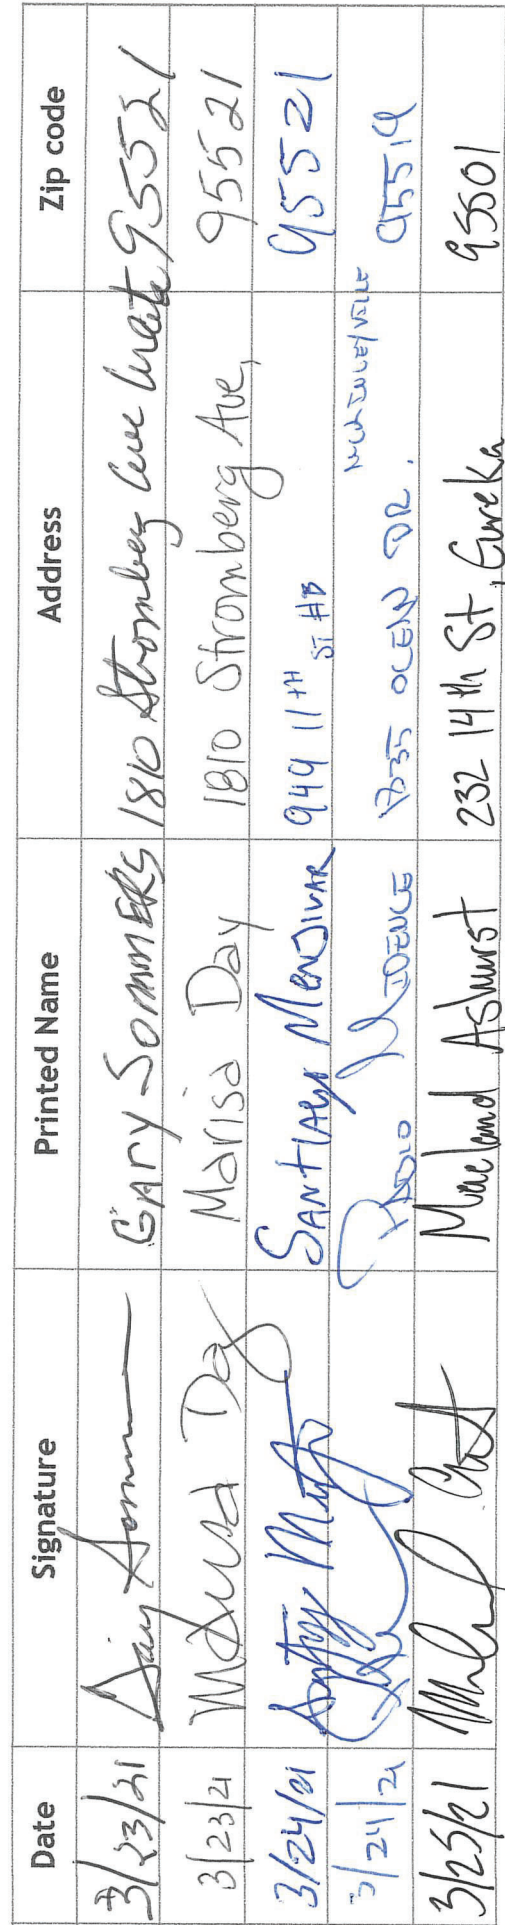 Date Signature Printed Name Address Zip code
3/23/21 Gary Sommers GARY SOMMERS 1810 Stromberg ave Arcata 95521
3/23/21 Marisa Day Marisa Day 1810 Stromberg Ave, 95521
3/24/21 SANTIAGO MENJIVAR 949 11TH ST #B 95521
3/24/21 PABLO MIDENCE OCEAN DR. MCKINLEYVILLE 95519
3/25/21 Ashurst 232 14th St, Eureka 95501